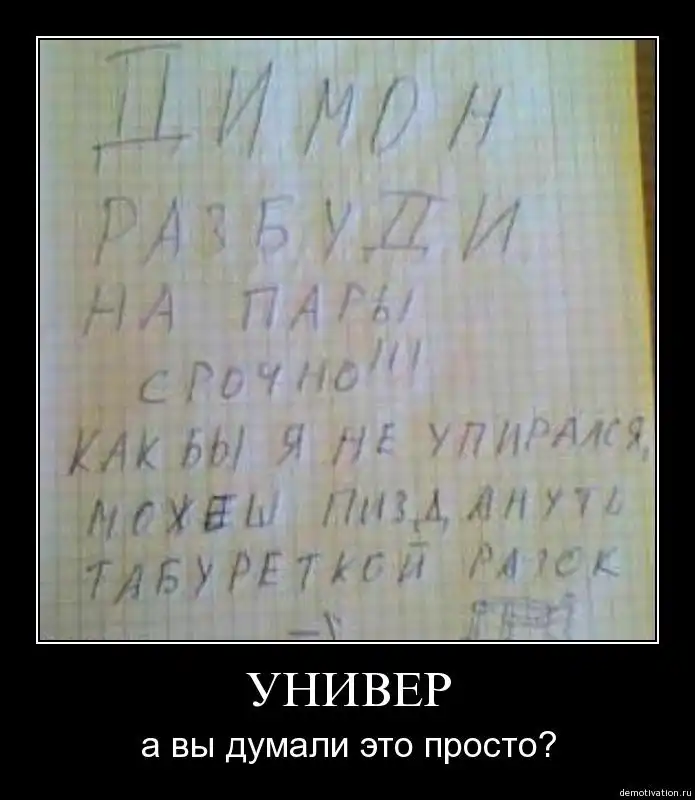 ДИМОН
РАЗБУДИ
НА ПАРЫ
СРОЧНО!!!
КАК БЫ Я НЕ УПИРАЛСЯ,
МОЖЕШ ПИЗДАНУТЬ
ТАБУРЕТКОЙ РАЗОК
УНИВЕР
а вы думали это просто?
demotivation.ru